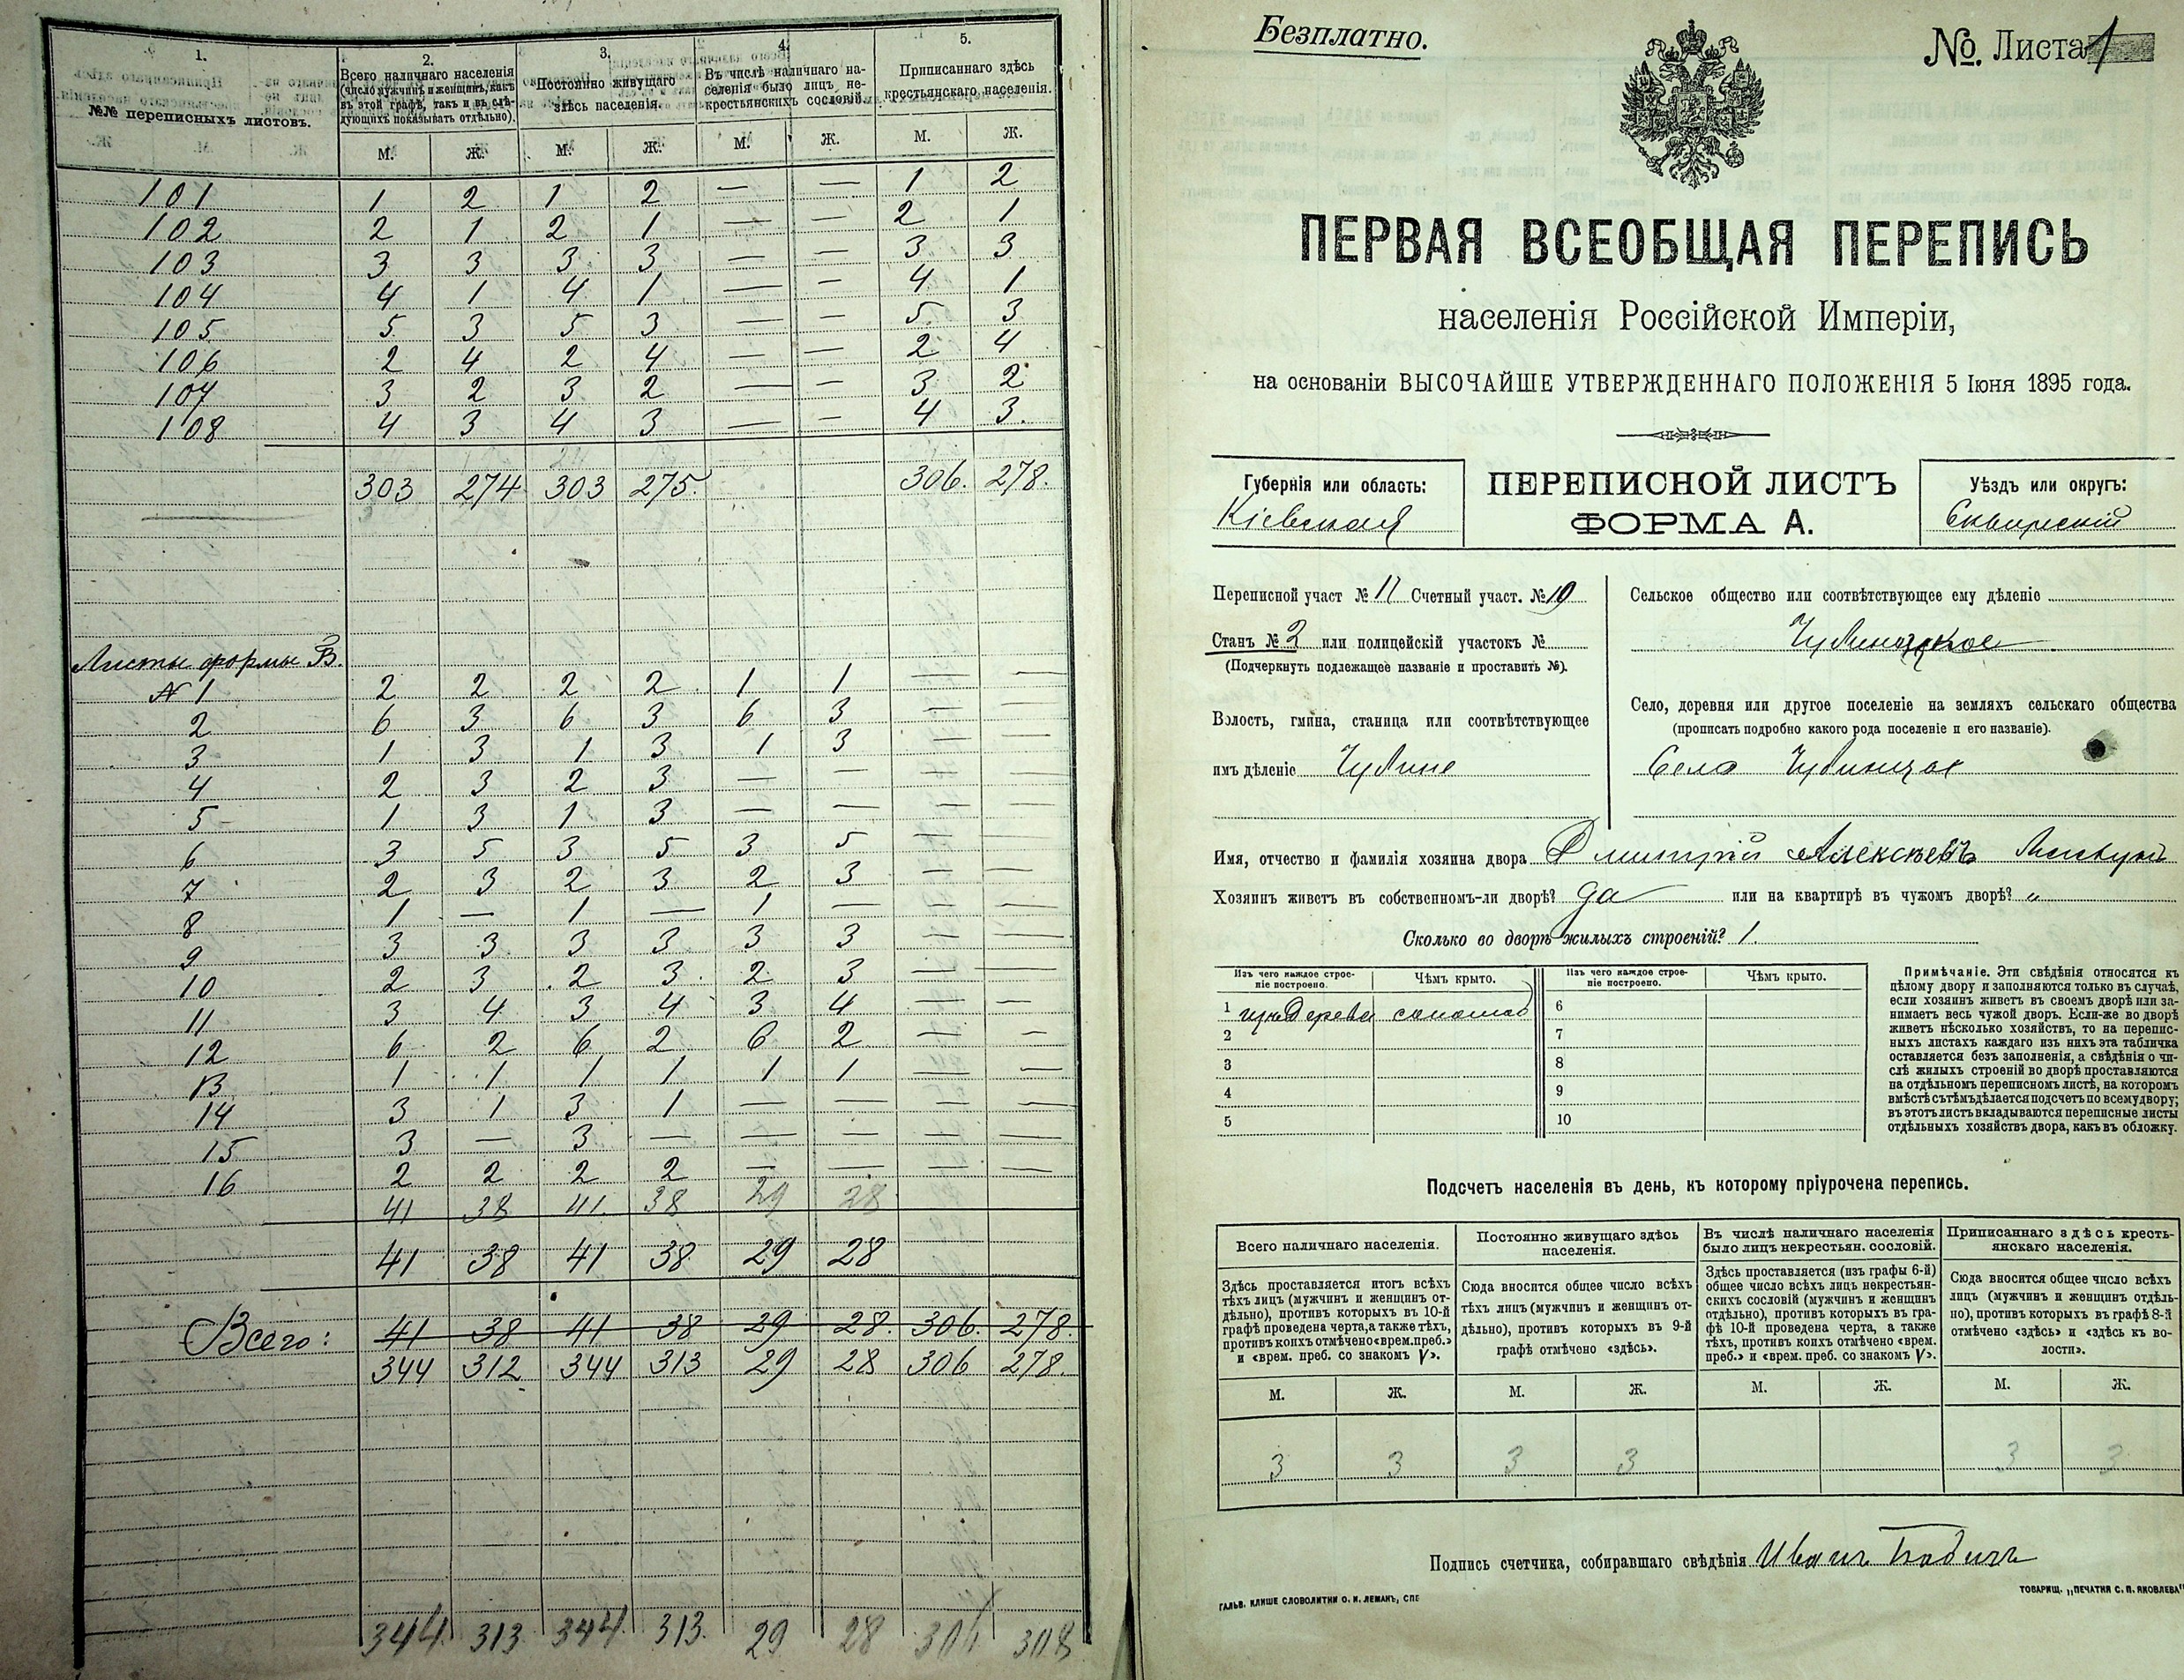 1. 2. 3. 4. 5.
№№ переписныхъ листовъ.
Всего наличнаго населенія
(число мужчинъ и женщинъ, какъ
въ этой графѣ, такъ и въ слѣ-
дующихъ показывать отдѣльно).
Постоянно живущаго
здѣсь населенія.
Въ числѣ наличнаго на-
селенія было лицъ, не-
крестьянскихъ сословій.
Приписаннаго здѣсь
крестьянскаго населенія.
М. Ж. М. Ж. М. Ж. М. Ж.
101 1 2 1 2 — — 1 2
102 2 1 2 1 — — 2 1
103 3 3 3 3 — — 3 3
104 4 1 4 1 — — 4 1
105 5 3 5 3 — — 5 3
106 2 4 2 4 — — 2 4
107 3 2 3 2 — — 3 2
108 4 3 4 3 — — 4 3.
303 274 303 275. 306. 278.
Листы формы Б.
№ 1 2 2 2 2 1 1 — —
2 6 3 6 3 6 3 — —
3 1 3 1 3 1 3 — —
4 2 3 2 3 — — — —
5 1 3 1 3 — — — —
6 3 5 3 5 3 5 — —
7 2 3 2 3 2 3 — —
8 1 — 1 — 1 — — —
9 3 3 3 3 3 3 — —
10 2 3 2 3 2 3 — —
11 3 4 3 4 3 4 — —
12 6 2 6 2 6 2 — —
13 1 1 1 1 1 1 — —
14 3 1 3 1 — — — —
15 3 — 3 — — — — —
16 2 2 2 2 — — — —
41 38 41. 38 29 28
41 38 41 38 29 28
Всего: 41 38 41 38 29 28. 306. 278.
344 312 344 313 29 28 306 278.
344. 313 344. 313. 29 28 308
Безплатно.
№ Листа 1
ПЕРВАЯ ВСЕОБЩАЯ ПЕРЕПИСЬ
населенія Россійской Имперіи,
на основаніи ВЫСОЧАЙШЕ УТВЕРЖДЕННАГО ПОЛОЖЕНІЯ 5 Іюня 1895 года.
Губернія или область:
Кіевская
ПЕРЕПИСНОЙ ЛИСТЪ
ФОРМА А.
Уѣздъ или округъ:
Сквирскій
Переписной участ № 11 Счетный участ. № 10
Станъ № 2 или полицейскій участокъ №
(Подчеркнуть подлежащее названіе и проставить №).
Волость, гмина, станица или соотвѣтствующее
имъ дѣленіе
Сельское общество или соотвѣтствующее ему дѣленіе
Село, деревня или другое поселеніе на земляхъ сельскаго общества
(прописать подробно какого рода поселеніе и его названіе).
Село
Имя, отчество и фамилія хозяина двора Дмитрій Алексѣевъ
Хозяинъ живетъ въ собственномъ-ли дворѣ? да или на квартирѣ въ чужомъ дворѣ? „
Сколько во дворѣ жилыхъ строеній? 1.
Изъ чего каждое строе-
ніе построено.
Чѣмъ крыто.
Изъ чего каждое строе-
ніе построено.
Чѣмъ крыто.
1 6
2 7
3 8
4 9
5 10
Примѣчаніе. Эти свѣдѣнія относятся къ
цѣлому двору и заполняются только въ случаѣ,
если хозяинъ живетъ въ своемъ дворѣ или за-
нимаетъ весь чужой дворъ. Если-же во дворѣ
живетъ нѣсколько хозяйствъ, то на перепис-
ныхъ листахъ каждаго изъ нихъ эта табличка
оставляется безъ заполненія, а свѣдѣнія о чи-
слѣ жилыхъ строеній во дворѣ проставляются
на отдѣльномъ переписномъ листѣ, на которомъ
вмѣстѣ съ тѣмъ дѣлается подсчетъ по всему двору;
въ этотъ листъ вкладываются переписные листы
отдѣльныхъ хозяйствъ двора, какъ въ обложку.
Подсчетъ населенія въ день, къ которому пріурочена перепись.
Всего наличнаго населенія.
Постоянно живущаго здѣсь
населенія.
Въ числѣ наличнаго населенія
было лицъ некрестьян. сословій.
Приписаннаго здѣсь кресть-
янскаго населенія.
Здѣсь проставляется итогъ всѣхъ
тѣхъ лицъ (мужчинъ и женщинъ от-
дѣльно), противъ которыхъ въ 10-й
графѣ проведена черта, а также тѣхъ,
противъ коихъ отмѣчено «врем. преб.»
и «врем. преб. со знакомъ V».
Сюда вносится общее число всѣхъ
тѣхъ лицъ (мужчинъ и женщинъ от-
дѣльно), противъ которыхъ въ 9-й
графѣ отмѣчено «здѣсь».
Здѣсь проставляется (изъ графы 6-й)
общее число всѣхъ лицъ некрестьян-
скихъ сословій (мужчинъ и женщинъ
отдѣльно), противъ которыхъ въ гра-
фѣ 10-й проведена черта, а также
тѣхъ, противъ коихъ отмѣчено «врем.
преб.» и «врем. преб. со знакомъ V».
Сюда вносится общее число всѣхъ
лицъ (мужчинъ и женщинъ отдѣль-
но), противъ которыхъ въ графѣ 8-й
отмѣчено «здѣсь» и «здѣсь къ во-
лости».
М. Ж. М. Ж. М. Ж. М. Ж.
3 3 3 3 3 3
Подпись счетчика, собиравшаго свѣдѣнія Иванъ
ГАЛЬВ. КЛИШЕ СЛОВОЛИТНИ О. И. ЛЕМАНЪ, СПБ
ТОВАРИЩ. „ПЕЧАТНЯ С. П. ЯКОВЛЕВА"